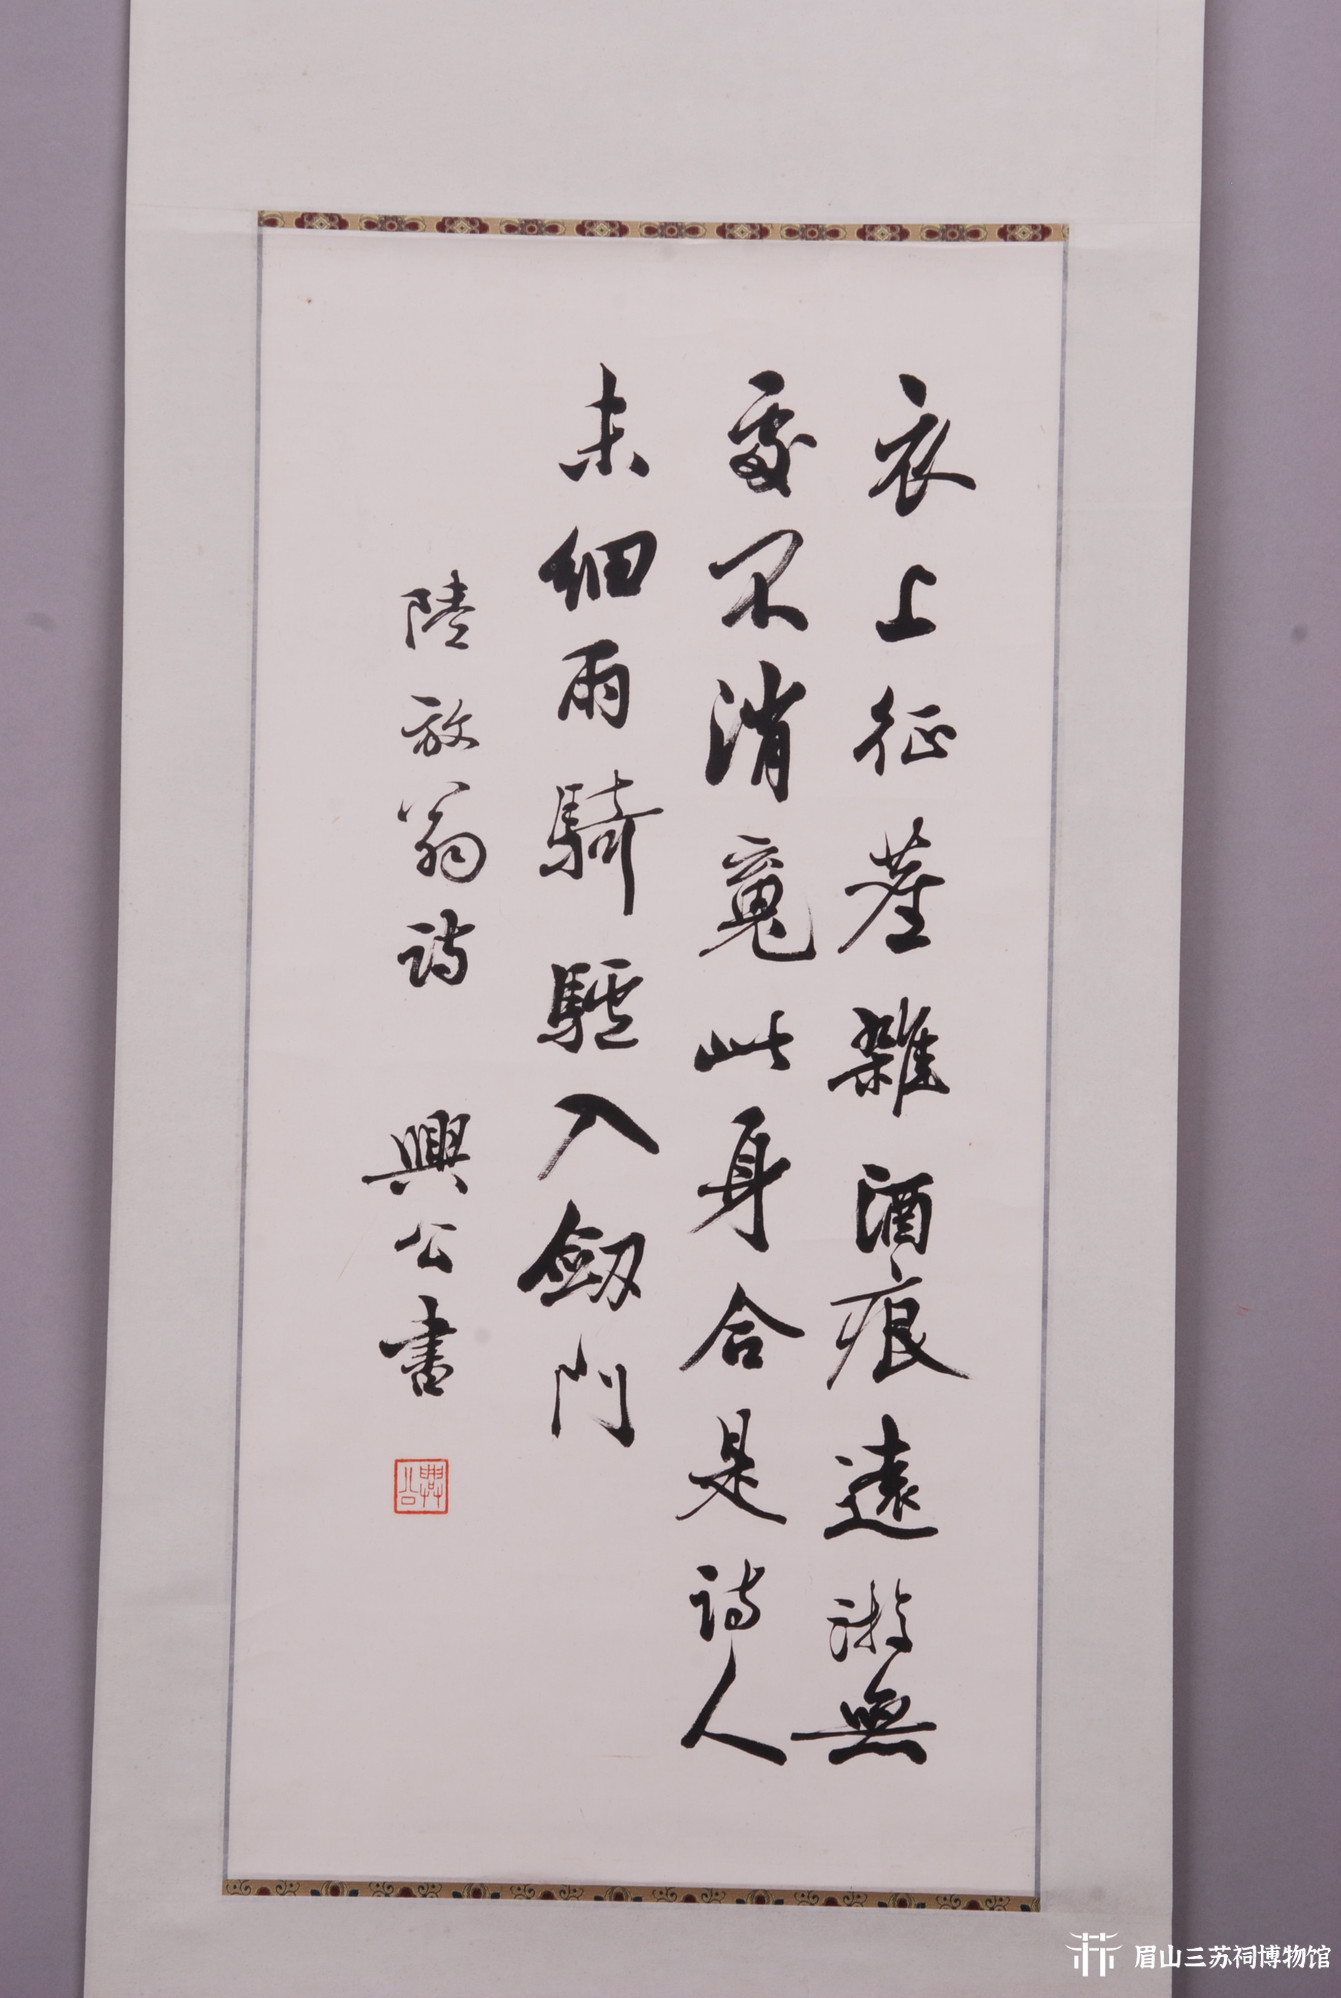 衣上征塵雜酒痕遠遊無
處不消竟此身合是詩人
未細雨騎驢入劒門
陸放翁詩 興公書
興公
眉山三苏祠博物馆